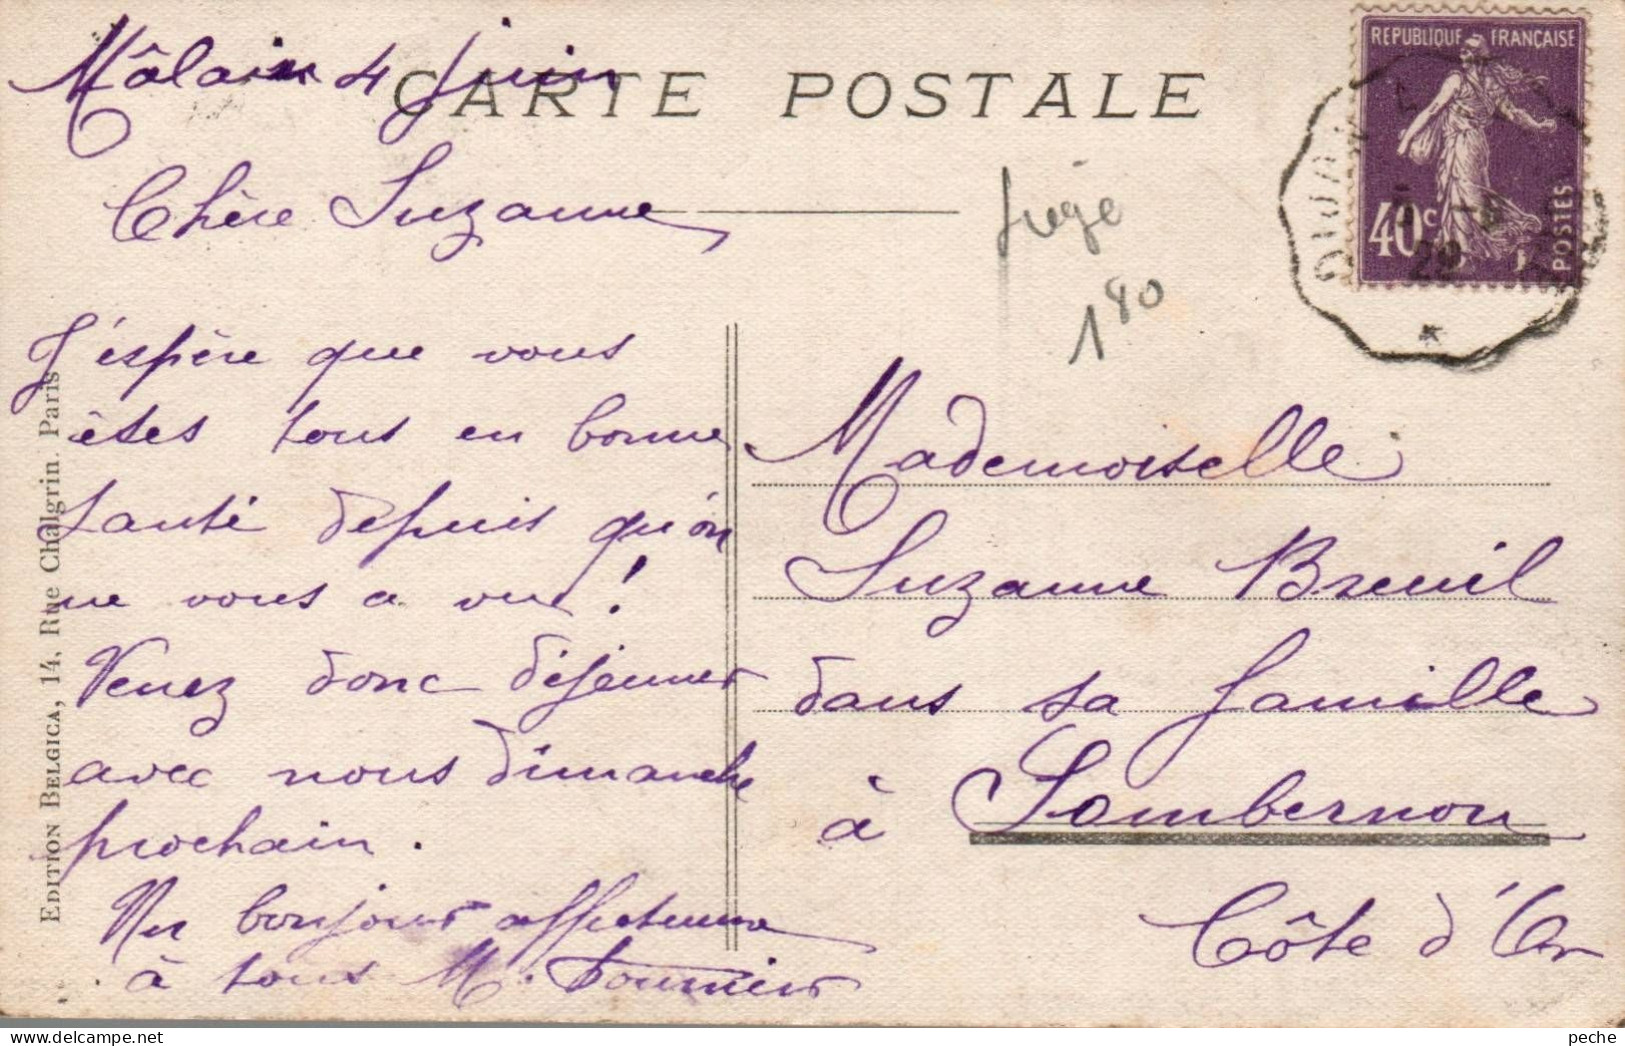 Mâlain 4 Juin
CARTE POSTALE
REPUBLIQUE FRANÇAISE
40c
POSTES
29
Chère Suzanne
Frégé
180
J'espère que vous
êtes tous en bonne
santé depuis qu'on
ne vous a vus !
Venez donc déjeuner
avec nous dimanche
prochain.
Un bonjour affectueux
à tous M. Fournier
Mademoiselle
Suzanne Breuil
dans sa famille
à Sombernon
Côte d'Or
EDITION BELGICA, 14, Rue Chalgrin. Paris
peche